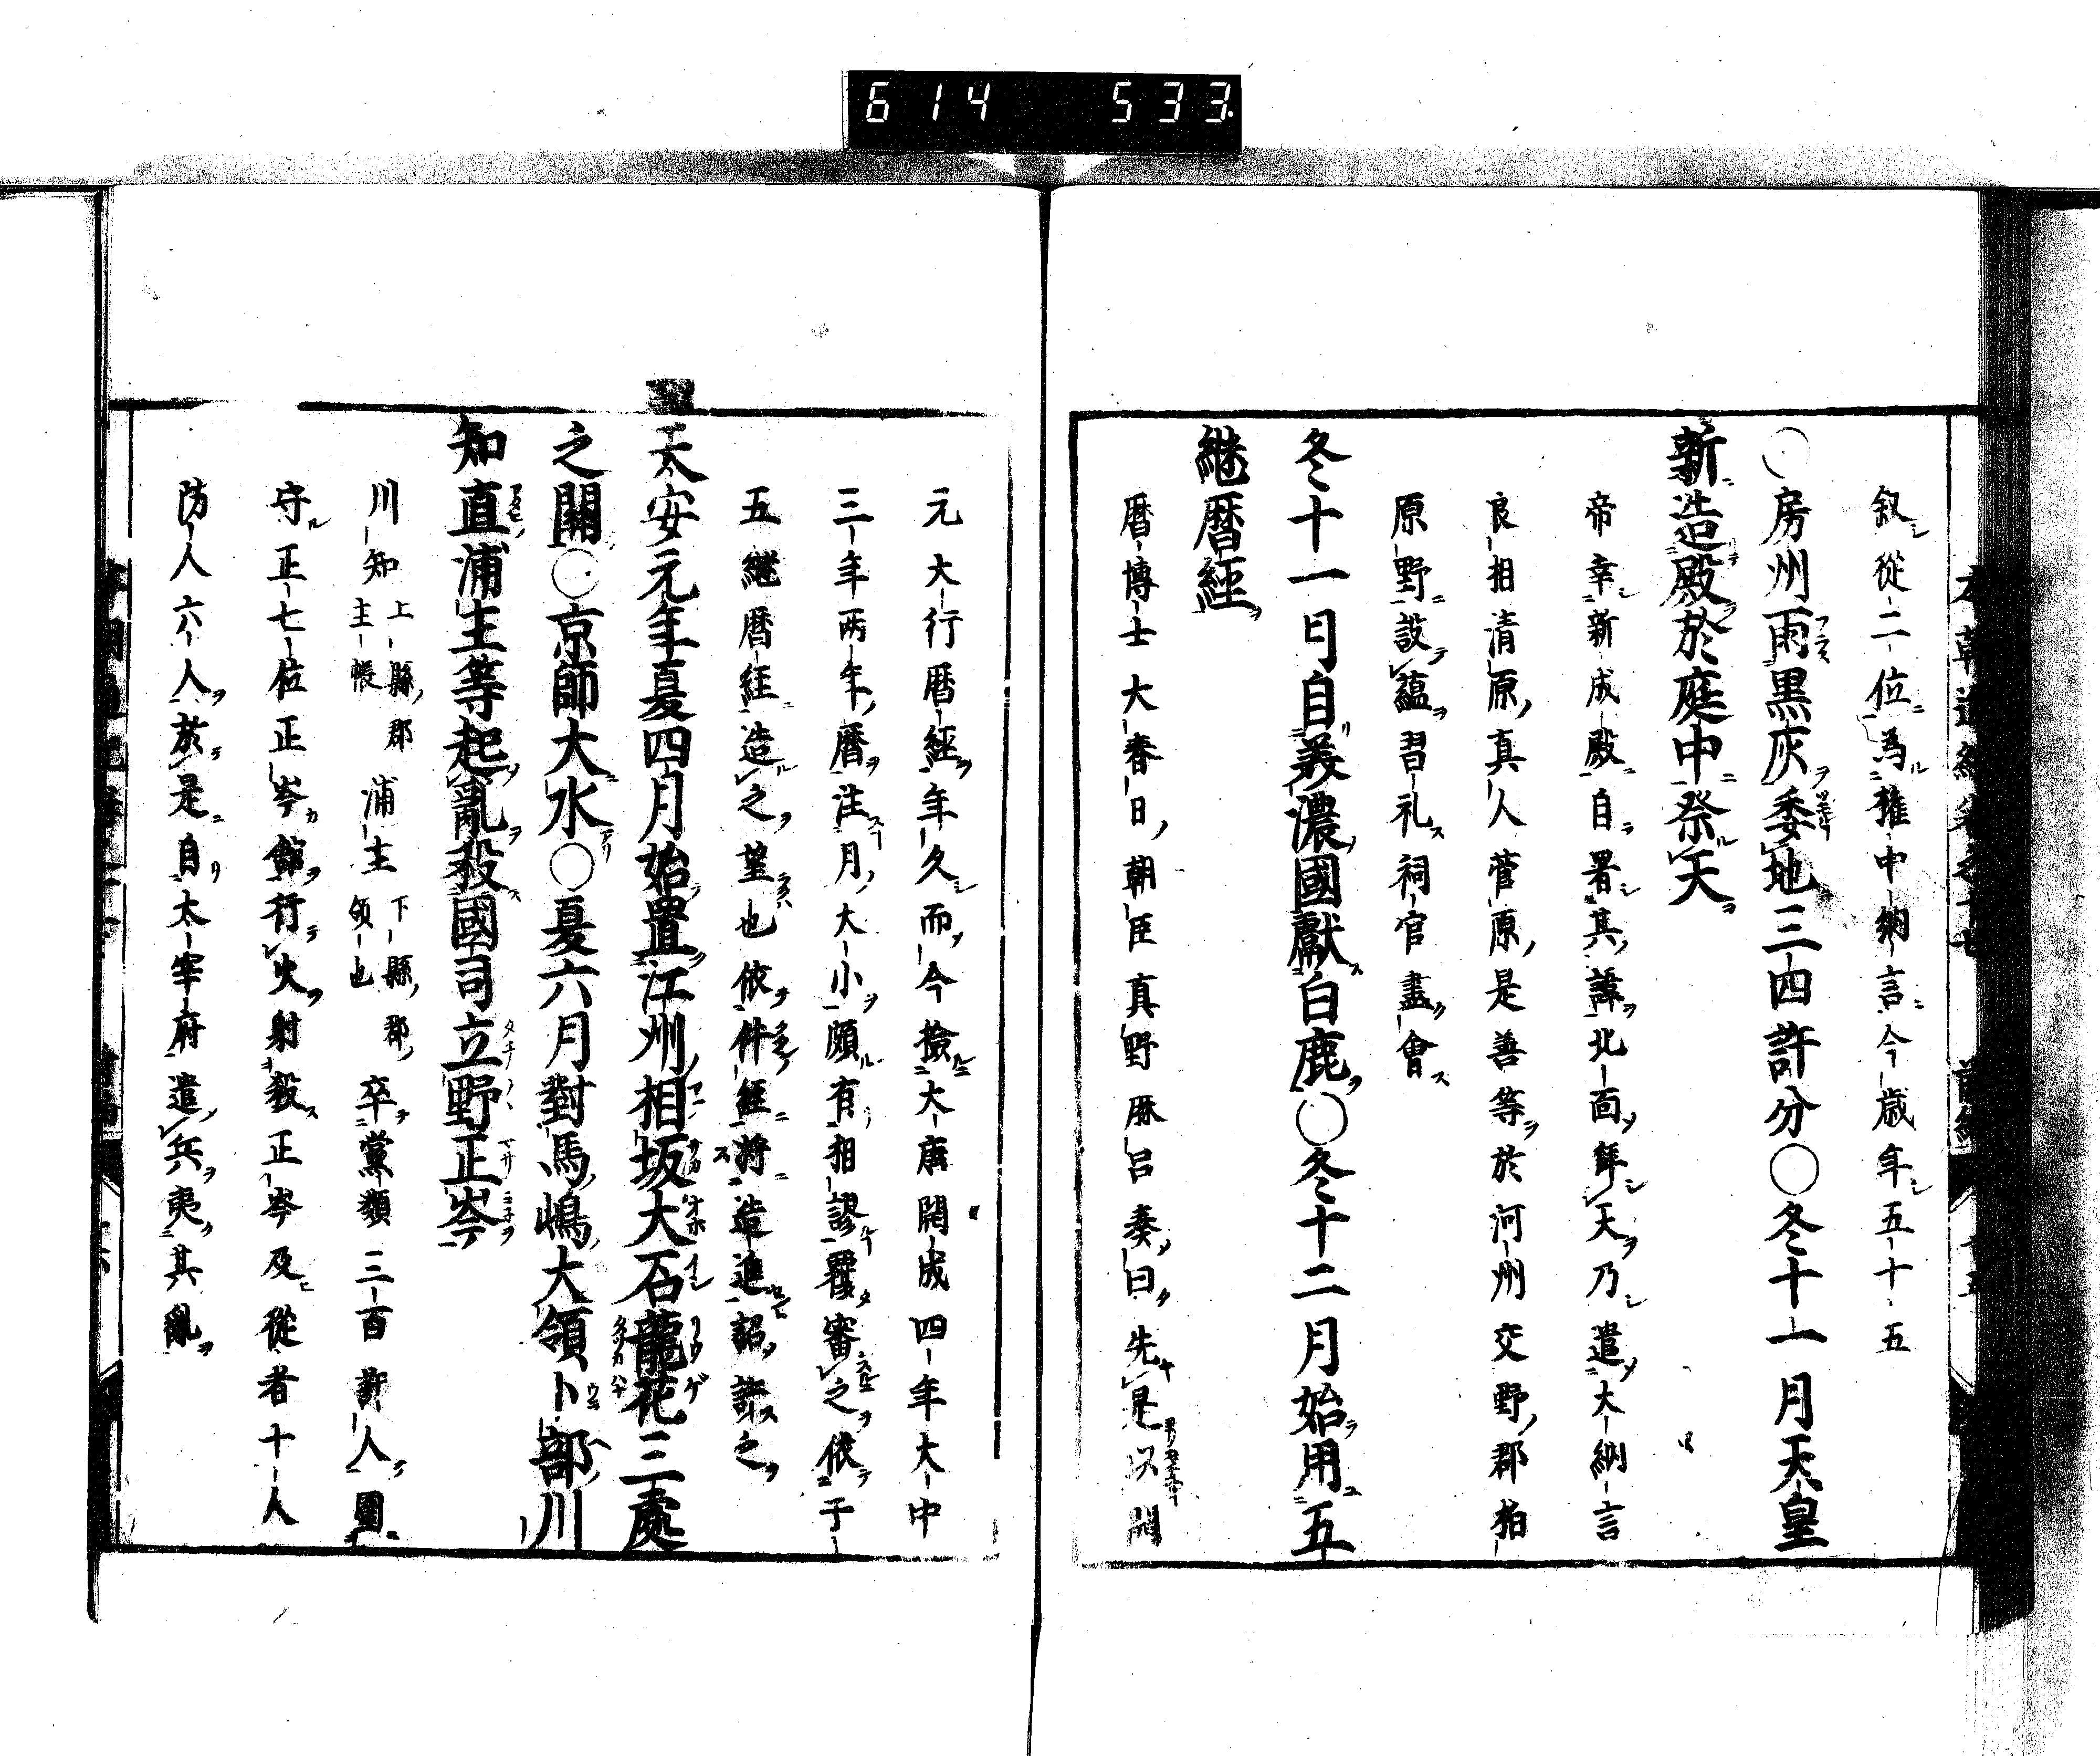 614 533
叙從二位為權中納言今歳年五十五
○房州雨黒灰委地三四許分○冬十一月天皇
新造殿於庭中祭天
帝幸新成殿自署其諱北面拜天乃遣大納言
良相清原真人菅原是善等於河州交野郡柏
原野設蕝習礼祠官盡會
冬十一月自美濃國獻白鹿○冬十二月始用五
継暦經
暦博士大春日朝臣真野麻呂奏曰先是以開
元大行暦經年久而今撿大唐開成四年大中
三年兩年暦注月大小頗有相謬覆審之依于
五継暦経造之望也依件經將造進詔許之
太安元年夏四月始置江州相坂大石龍花三處
之關○京師大水○夏六月對馬嶋大領卜部川
知直浦主等起亂殺國司立野正岑
川知上縣郡主帳浦主下縣郡領也卒黨類三百許人圍
守正七位正岑館行火射殺正岑及從者十人
防人六人於是自太宰府遣兵夷其亂